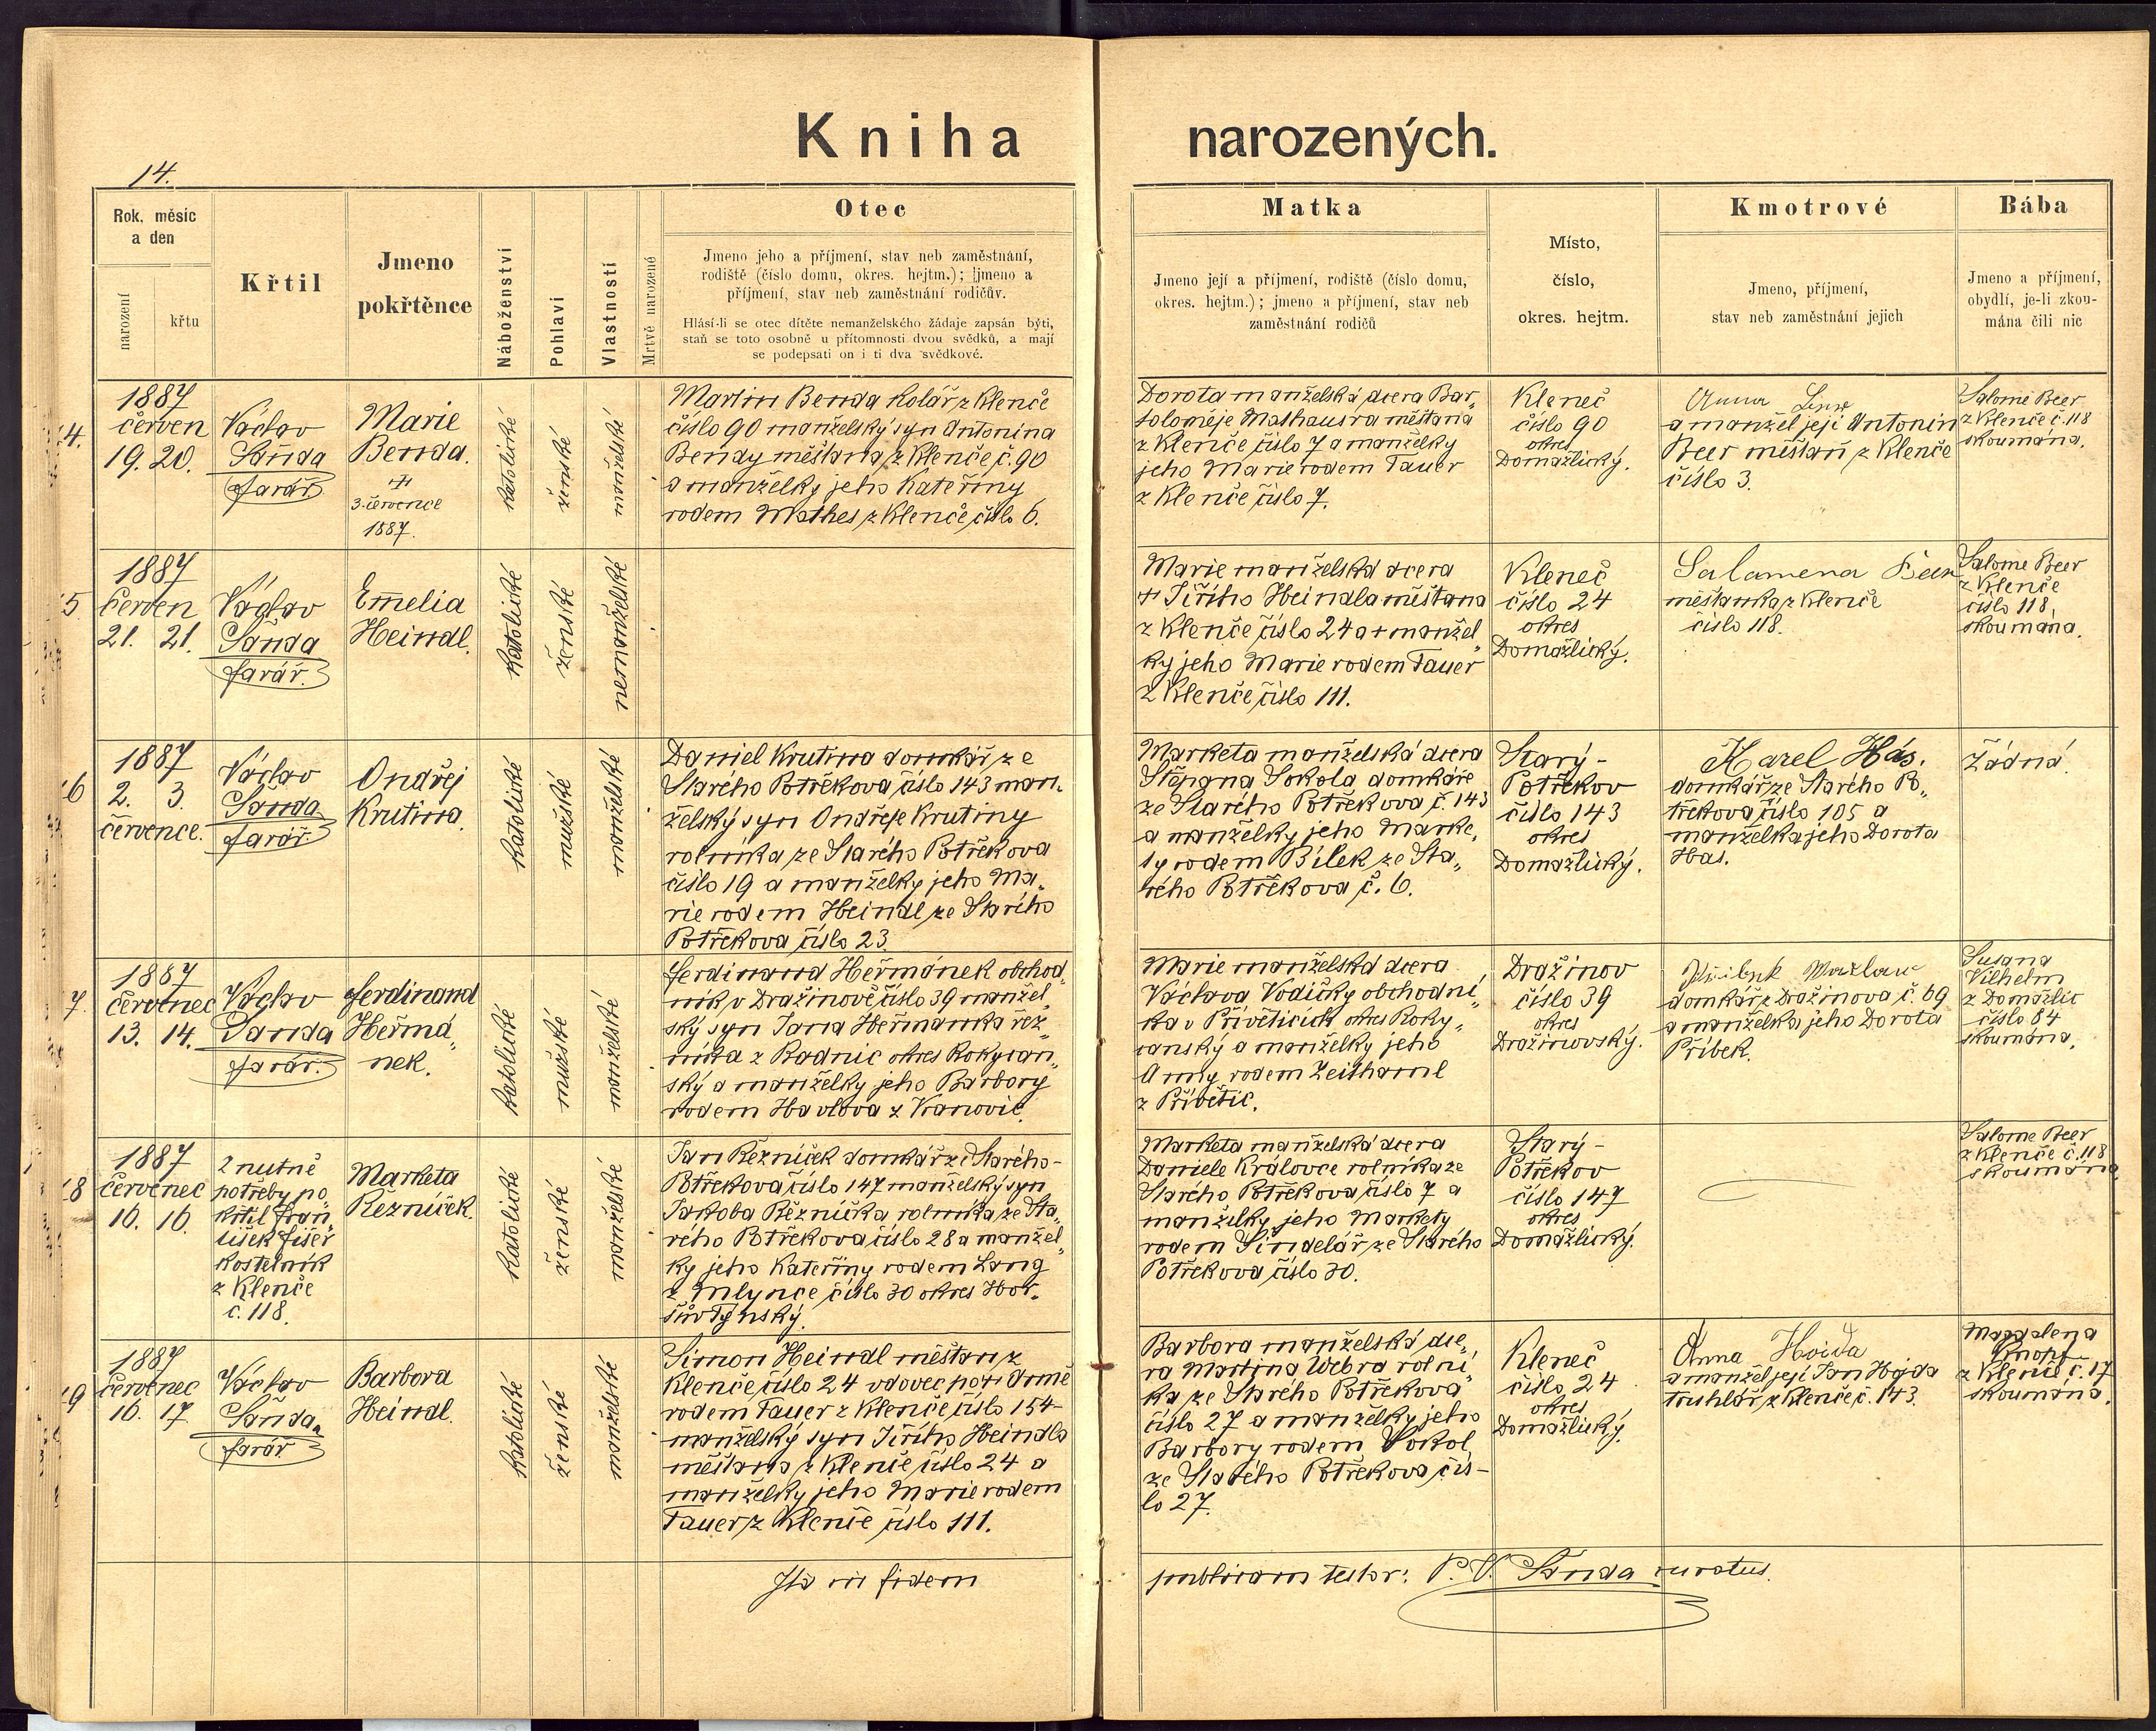 Kniha narozených.
14.
Rok, měsíc
a den
narození
křtu
Křtil
Jmeno
pokřtěnce
Náboženství
Pohlaví
Vlastnosti
Mrtvě narozené
Otec
Jmeno jeho a příjmení, stav neb zaměstnání,
rodiště (číslo domu, okres. hejtm.); jmeno a
příjmení, stav neb zaměstnání rodičův.
Hlásí-li se otec dítěte nemanželského žádaje zapsán býti,
staň se toto osobně u přítomnosti dvou svědků, a mají
se podepsati on i ti dva svědkové.
Matka
Jmeno její a příjmení, rodiště (číslo domu,
okres. hejtm.); jmeno a příjmení, stav neb
zaměstnání rodičů
Místo,
číslo,
okres. hejtm.
Kmotrové
Jmeno, příjmení,
stav neb zaměstnání jejich
Bába
Jmeno a příjmení,
obydlí, je-li zkou-
mána čili nic
4.
1887
červen
19. 20.
Václav
Šanda
farář
Marie
Benda.
3. července
1887.
katolické
ženské
manželské
Martin Benda kolář z Klenče
číslo 90 manželský syn Antonína
Bendy měšťana z Klenče č. 90
a manželky jeho Kateřiny
rodem Mathes z Klenče číslo 6.
Dorota manželská dcera Bar„
toloměje Mathausra měšťana
z Klenče číslo 7 a manželky
jeho Marie rodem Tauer
z Klenče číslo 7.
Kleneč
číslo 90
okres
Domažlický.
Anna
a manžel její Antonin
Beer měšťan z Klenče
číslo 3.
Salome Beer
z Klenče č. 118
skoumána.
5
1887
červen
21. 21.
Václav
Šanda
farář.
Emelia
Heindl.
katolické
ženské
nemanželské
Marie manželská dcera
+ Jiřího Heindla měšťana
z Klenče číslo 24 a + manžel„
ky jeho Marie rodem Tauer
z Klenče číslo 111.
Kleneč
číslo 24
okres
Domažlický.
Salamena Beer
měšťanka z Klenče
číslo 118.
Salome Beer
z Klenče
číslo 118,
skoumána.
6
1887
2. 3.
července.
Václav
Šanda
farář
Ondřej
Krutina.
katolické
mužské
manželské
Daniel Krutina domkář ze
Starého Potřekova číslo 143 man„
želský syn Ondřeje Krutiny
rolníka ze Starého Potřekova
číslo 19 a manželky jeho Ma„
rie rodem Heindl ze Starého
Potřekova číslo 23.
Marketa manželská dcera
Štěpana Sokola domkáře
ze Starého Potřekova č. 143
a manželky jeho Marke„
ty rodem Bílek ze Sta„
rého Potřekova č. 6.
Starý-
Potřekov
číslo 143
okres
Domažlický.
Karel Hás.
domkář ze Starého Po„
třekova číslo 105 a
manželka jeho Dorota
Has.
Žádná.
7.
1887
červenec
13. 14.
Václav
Šanda
farář.
Ferdinand
Heřmá„
nek.
katolické
mužské
manželské
Ferdinand Heřmánek obchod„
ník v Dražinově číslo 39 manžel„
ský syn Jana Heřmanka řez„
níka z Radnic okres Rokycan„
ský a manželky jeho Barbory
rodem Havlova z Vranovic.
Marie manželská dcera
Václava Vodičky obchodní„
ka v Přívěticích okres Roky„
canský a manželky jeho
Anny rodem Zeithaml
z Přívětic.
Dražinov
číslo 39
okres
Dražinovský.
domkář z Dražinova č. 69
a manželka jeho Dorota
Příbek.
Susana
Vilhelm
z Domažlic
číslo 84
skoumána.
8
1887
červenec
16. 16.
Z nutné
potřeby po„
křtil Fran„
tišek Fišer
kostelník
z Klenče
č. 118.
Marketa
Řezníček.
katolické
ženské
manželské
Jan Řezníček domkář ze Starého-
Potřekova číslo 147 manželský syn
Jakoba Řezníčka rolníka ze Sta„
rého Potřekova číslo 28 a manžel„
ky jeho Kateřiny rodem Lang
z Mlynce číslo 30 okres Hor„
šův Tynský.
Marketa manželská dcera
Daniele Královce rolníka ze
Starého Potřekova číslo 7 a
manželky jeho Markety
rodem Šindelář ze Starého
Potřekova číslo 30.
Starý-
Potřekov
číslo 147
okres
Domažlický.
Salome Beer
z Klenče č. 118
skoumána
9
1887
červenec
16. 17.
Václav
Šanda
farář
Barbora
Heindl.
katolické
ženské
manželské
Šimon Heindl měšťan z
Klenče číslo 24 vdovec po + Anně
rodem Tauer z Klenče číslo 154-
manželský syn Jiřího Heindla
měšťana z Klenče číslo 24 a
manželky jeho Marie rodem
Tauer z Klenče číslo 111.
Barbora manželská dce„
ra Martina Webra rolní„
ka ze Starého Potřekova
číslo 27 a manželky jeho
Barbory rodem Sokol
ze Starého Potřekova čís-
lo 27.
Kleneč
číslo 24
okres
Domažlický.
Anna Hoida
a manžel její Jan Hojda
truhlář z Klenče č. 143.
Magdalena
Knopf
z Klenče č. 17
skoumána.
Ita in fidem publicam testor: P. V. Šanda curatus.